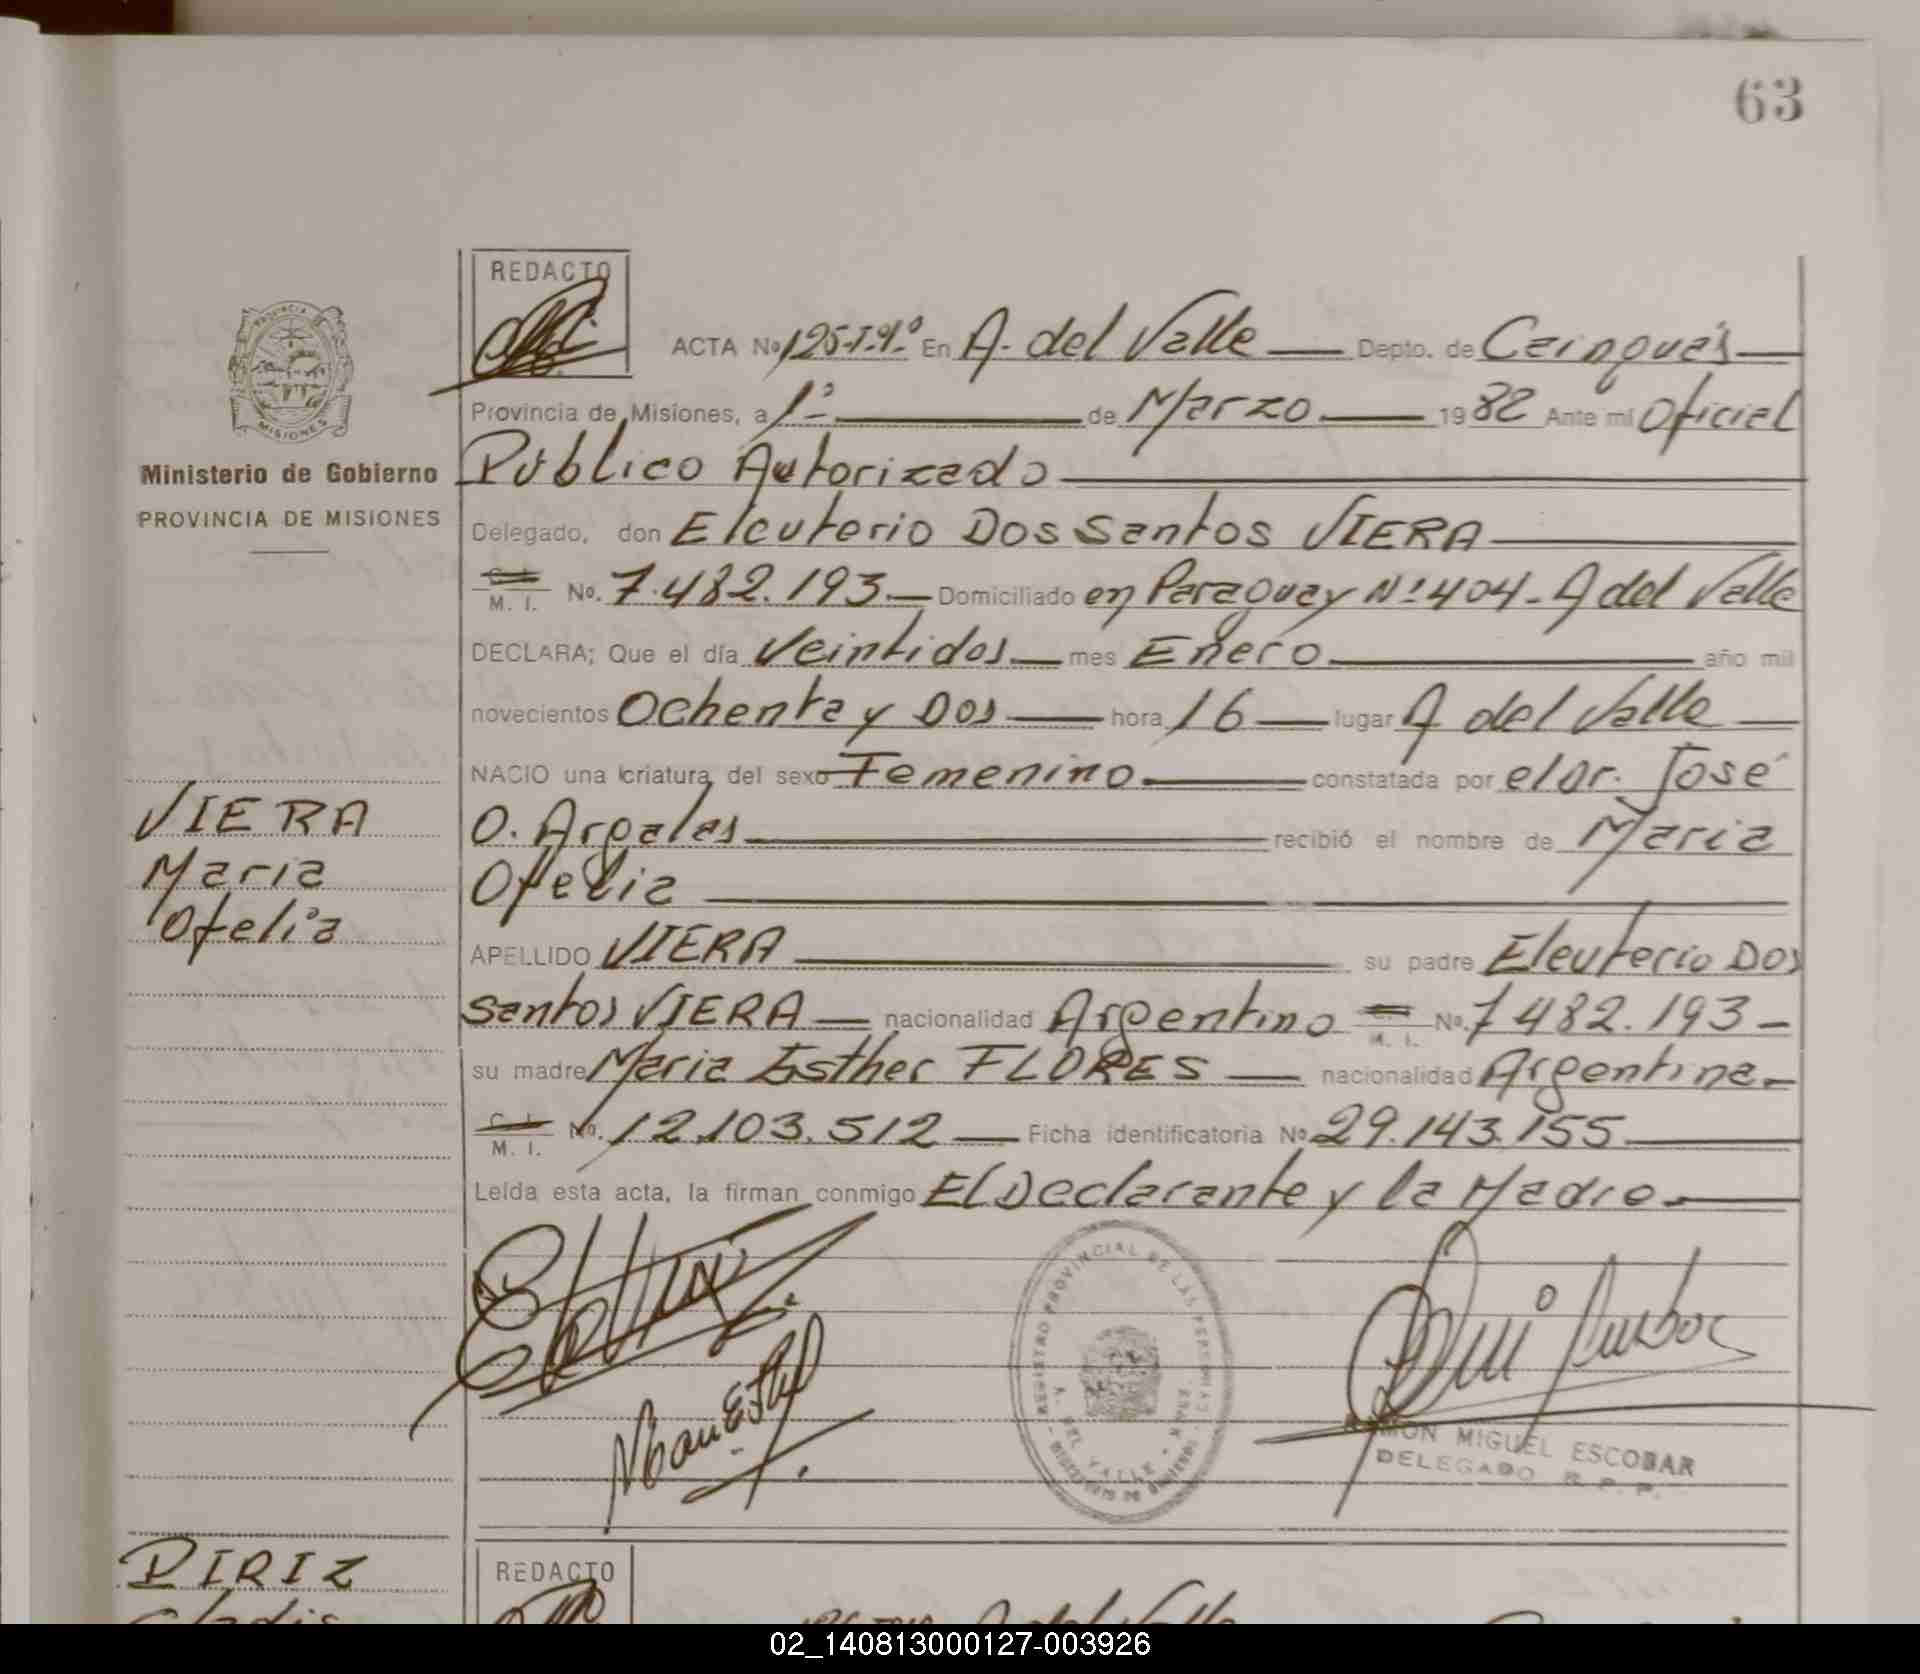 63
REDACTO
ACTA No 125-T-1º En A. del Valle Depto. de Cainguás
Provincia de Misiones, a 1º de Marzo 1982 Ante mi Oficial
Ministerio de Gobierno
Público Autorizado
PROVINCIA DE MISIONES
Delegado, don Eleuterio Dos Santos VIERA
M. I. No. 7.482.193 Domiciliado en Paraguay Nº 404 - A del Valle
DECLARA; Que el día Veintidos mes Enero año mil
novecientos Ochenta y Dos hora 16 lugar A del Valle
NACIO una criatura del sexo Femenino constatada por el Dr. José
VIERA
O. Argales recibió el nombre de Maria
Maria
Ofelia
Ofelia
APELLIDO VIERA su padre Eleuterio Dos
Santos VIERA nacionalidad Argentino M. I. No. 7 482.193
su madre Maria Esther FLORES nacionalidad Argentina
M. I. No. 12.103.512 Ficha identificatoria No 29.143.155
Leída esta acta, la firman conmigo El Declarante y la Madre
REGISTRO PROVINCIAL DE LAS PERSONAS
A. DEL VALLE
MIGUEL ESCOBAR
DELEGADO R. P. P.
PIRIZ
REDACTO
02_140813000127-003926